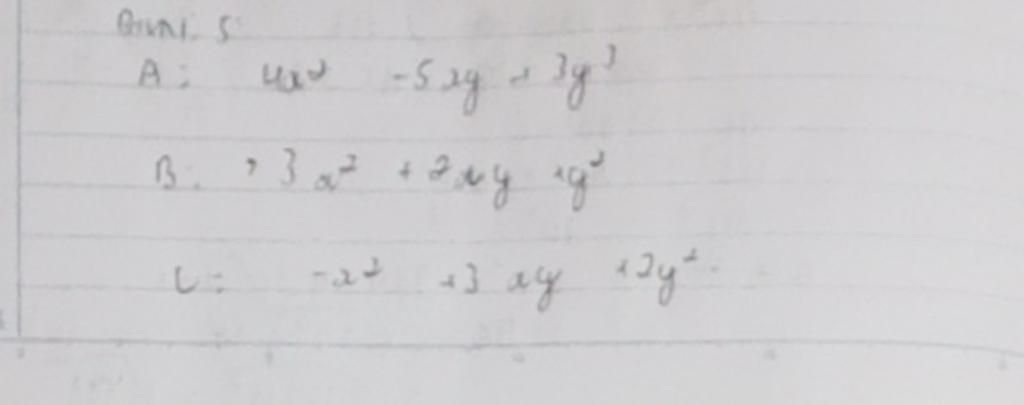 A = 4x² - 5xy + 3y³
B = 3x² + 2xy + y²
C = -x² + 3xy + 2y²